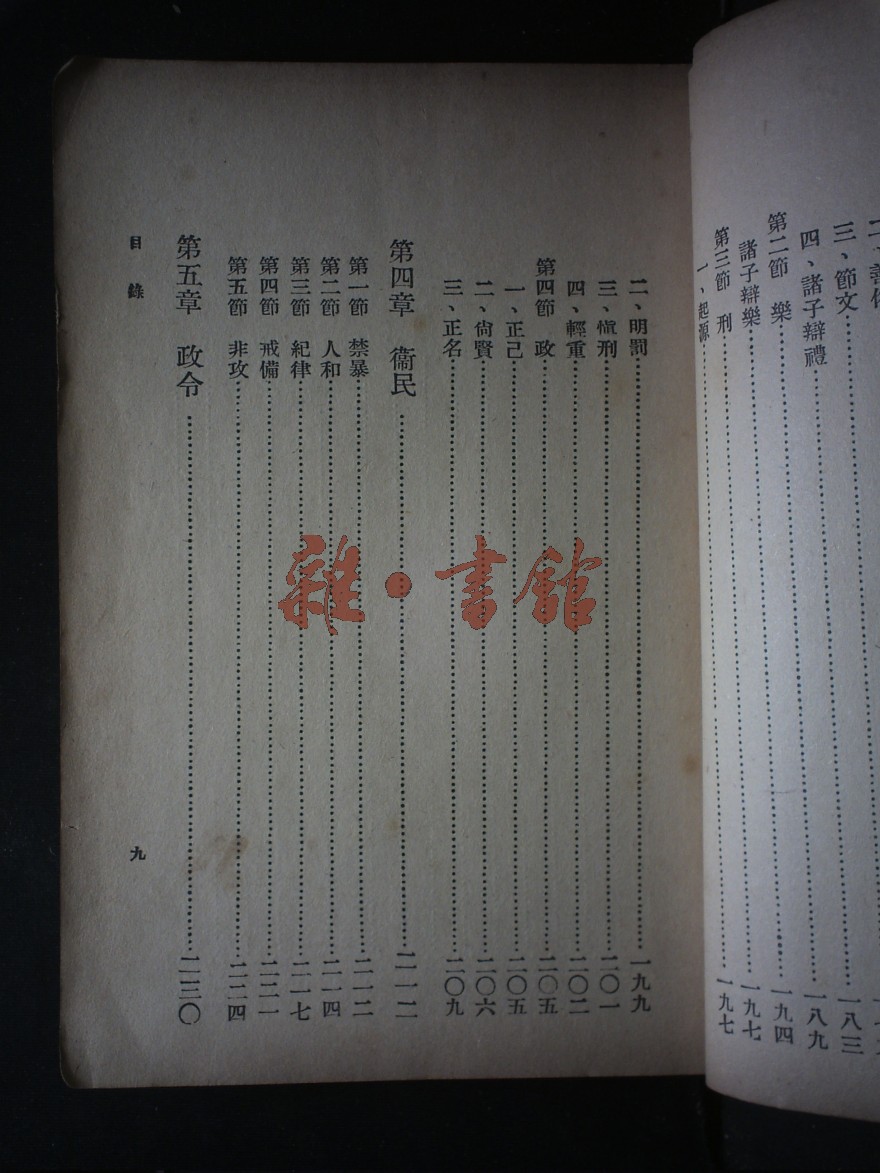 三、節文……一八三
四、諸子辯禮……一八九
第二節 樂……一九四
諸子辯樂……一九七
第三節 刑……一九七
一、起源……
二、明罰……一九九
三、愼刑……二〇一
四、輕重……二〇二
第四節 政……二〇五
一、正己……二〇五
二、尙賢……二〇六
三、正名……二〇九
第四章 衞民……二一二
第一節 禁暴……二一二
第二節 人和……二一四
第三節 紀律……二一七
第四節 戒備……二二一
第五節 非攻……二二四
第五章 政令……二三〇
目錄 九
雜·書館